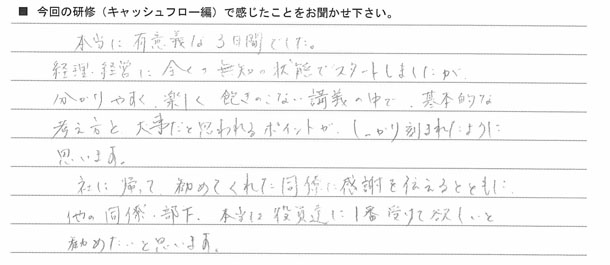 ■ 今回の研修（キャッシュフロー編）で感じたことをお聞かせ下さい。
本当に有意義な3日間でした。
経理・経営に全くの無知の状態でスタートしましたが、
分かりやすく、楽しく飽きのこない講義の中で、基本的な
考え方と、大事だと思われるポイントが、しっかり刻まれたように
思います。
社に帰って、勧めてくれた同僚に感謝を伝えるとともに、
他の同僚・部下、本当は役員達に1番受けて欲しいと
勧めたいと思います。